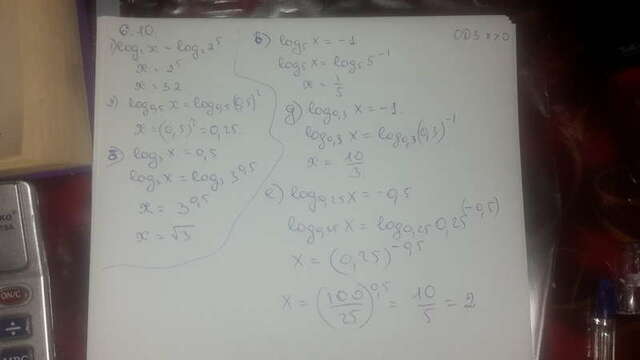 6.10.
1) log₂x = log₂2⁵
x = 2⁵
x = 32
2) log₀,₅x = log₀,₅(0,5)²
x = (0,5)² = 0,25.
3) log₃x = 0,5
log₃x = log₃3^0,5
x = 3^0,5
x = √3
ODЗ x>0.
log₅x = -1
log₅x = log₅5⁻¹
x = 1/5
g) log₀,₃x = -1.
log₀,₃x = log₀,₃(0,3)⁻¹
x = 10/3
log₀,₂₅x = -0,5
log₀,₂₅x = log₀,₂₅0,25^(-0,5)
x = (0,25)^-0,5
x = (100/25)^0,5 = 10/5 = 2
ON/C
÷